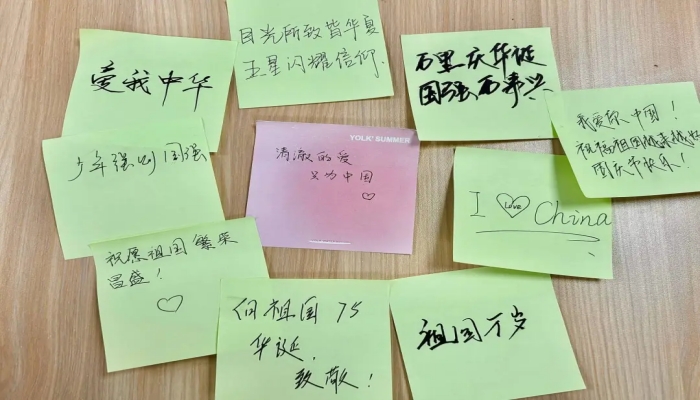 目光所致皆华夏
五星闪耀信仰.
爱我中华
万里庆华诞
国强百事兴
我爱你中国!
祝福祖国
国庆节快乐!
少年强则国强
YOLK' SUMMER
清澈的爱
只为中国
I Love China
祝愿祖国繁荣
昌盛!
向祖国75
华诞,
致敬!
祖国万岁